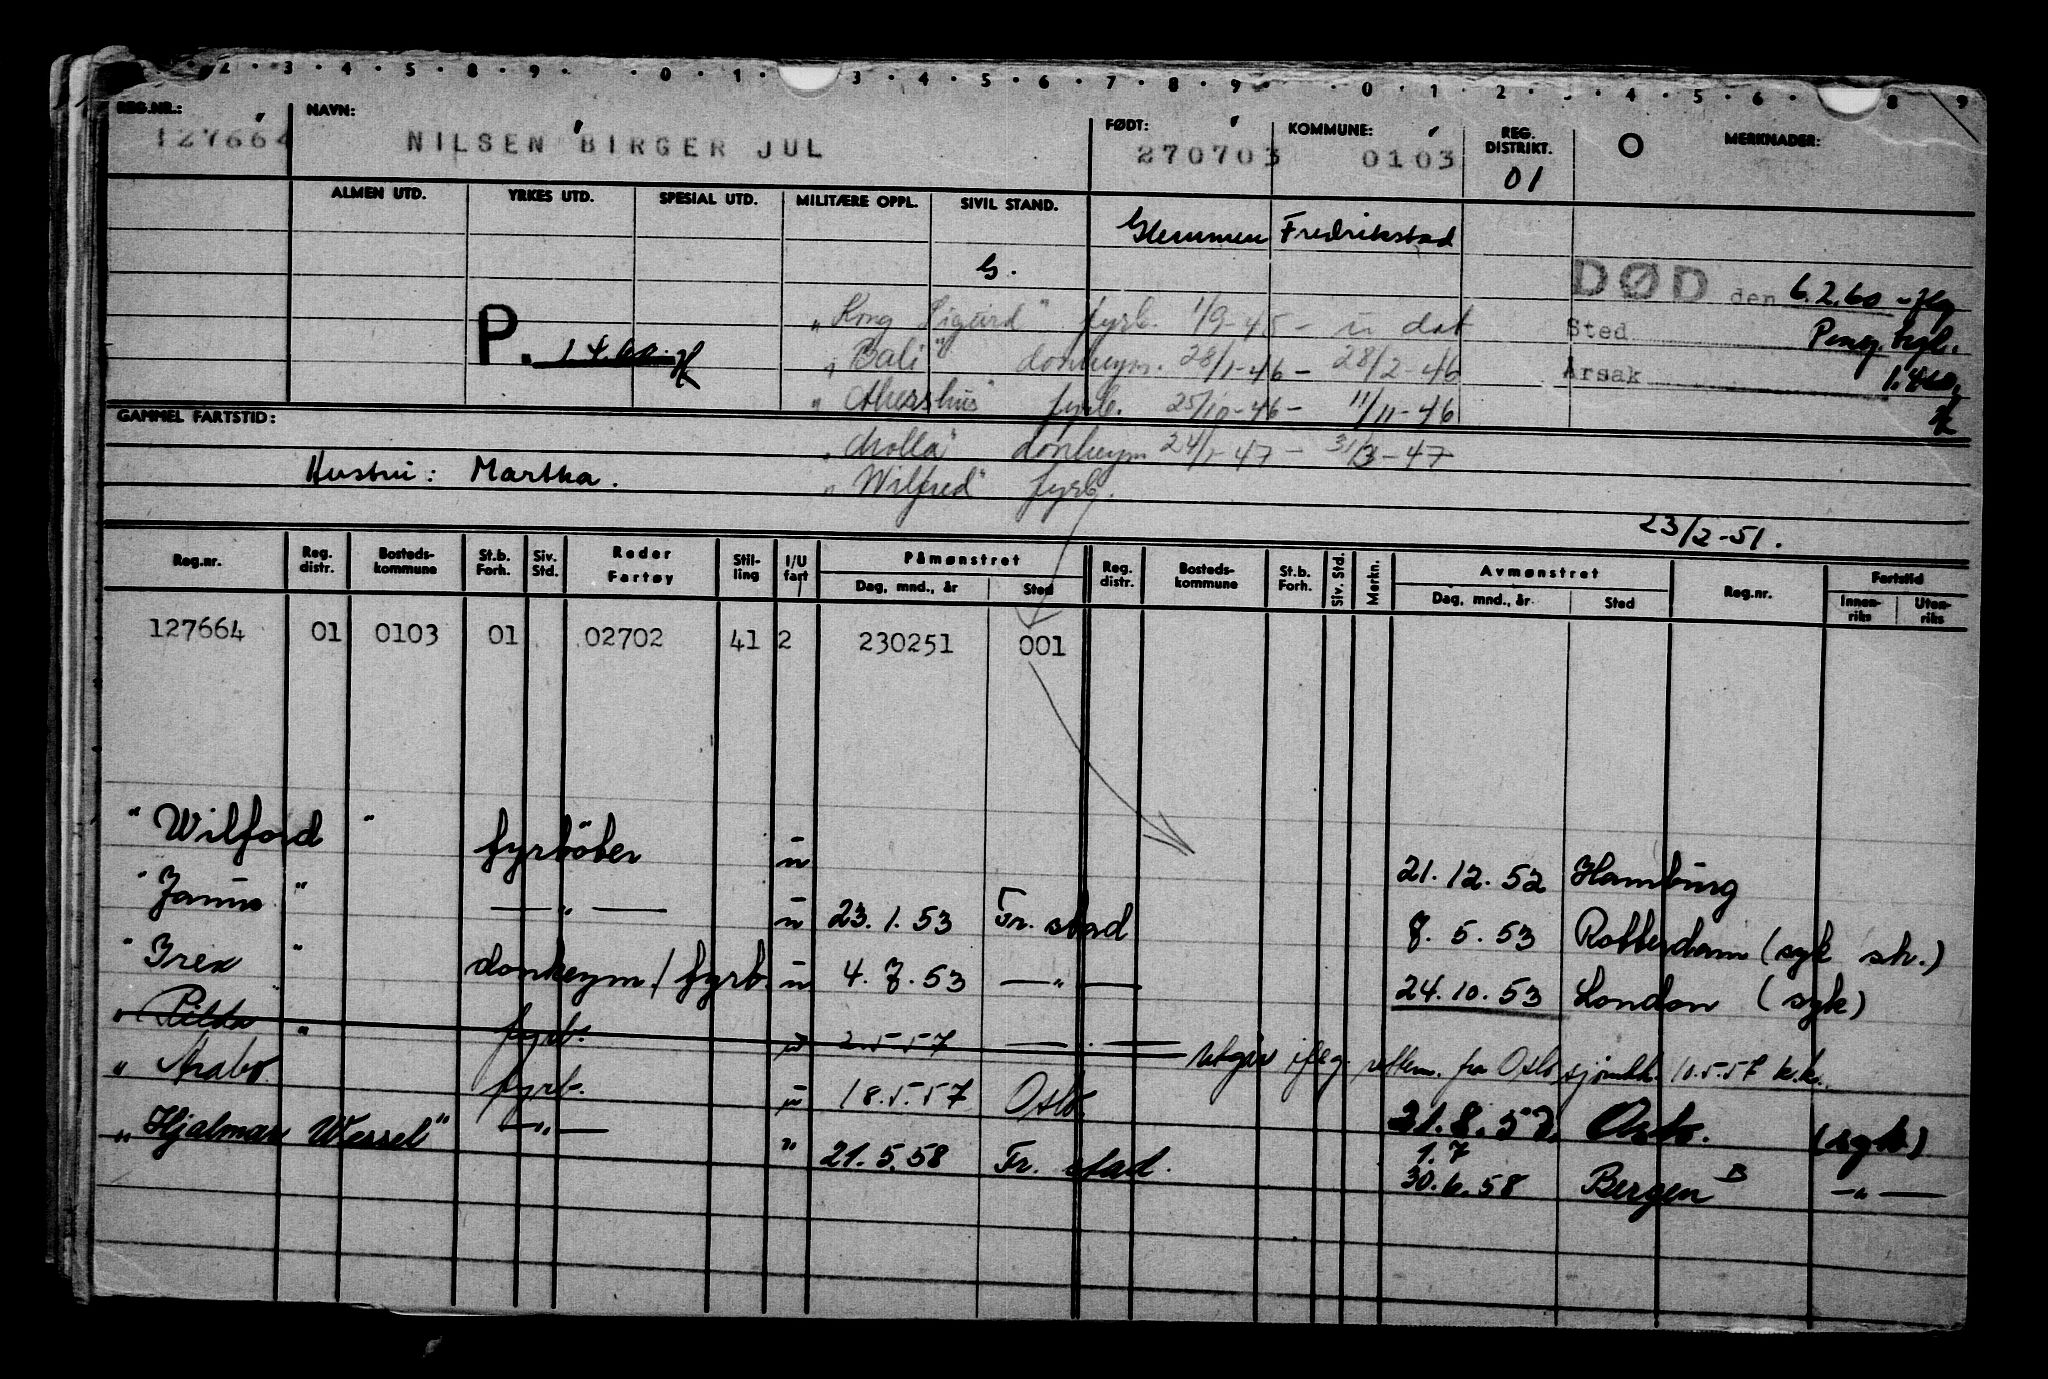 2 · 3 · 4 · 5 · 8 · 9 · 0 · 1 · 3 · 4 · 5 · 6 · 7 · 8 · 9 · 0 · 1 · 2 · 3 · 4 · 5 · 6 · 8 9
REG.NR.: NAVN: FØDT: KOMMUNE: REG. DISTRIKT. O MERKNADER:
127664 NILSEN BIRGER JUL 270703 0103 01
ALMEN UTD. YRKES UTD. SPESIAL UTD. MILITÆRE OPPL. SIVIL STAND.
Glemmen Fredrikstad
G.
DØD den 6.2.60
"Kong Sigurd" fyrb. 1/9-45 - u dat
Sted Peng. trgl.
P.
"Bali" donkeym. 28/1-46 - 28/2-46
Årsak
"Akershus" fyrb. 25/10-46 - 11/11-46
GAMMEL FARTSTID:
"Molla" donkeym 24/1-47 - 31/3-47
Hustru: Martha.
"Wilfred" fyrb.
23/2-51.
Reg.nr. Reg. distr. Bosteds-kommune St.b. Forh. Siv. Std. Reder Fartøy Stil-ling I/U fart Påmønstret Reg. distr. Bosteds-kommune St.b. Forh. Siv. Std. Merkn. Avmønstret Reg.nr. Fartstid
Dag, mnd., år Sted Dag, mnd., år Sted Innen-riks Uten-riks
127664 01 0103 01 02702 41 2 230251 001
"Wilford" fyrböter u 21.12.52 Hamburg
"Janus" —"— u 23.1.53 Fr. stad 8.5.53 Rotterdam (syk sk.)
"Irex" donkeym/fyrb. u 4.7.53 —"— 24.10.53 London (syk)
"Rilda" fyrb. u 2.5.57 —"— Utgår iflg. reffem. fra Oslo sjömk. 10.5.57 k.k.
"Arabo" fyrb. u 18.5.57 Oslo. 21.8.57. Oslo. (syk)
"Hjalmar Wessel" —"— " 21.5.58 Fr. stad. 1.7
30.6.58 Bergen B —"—